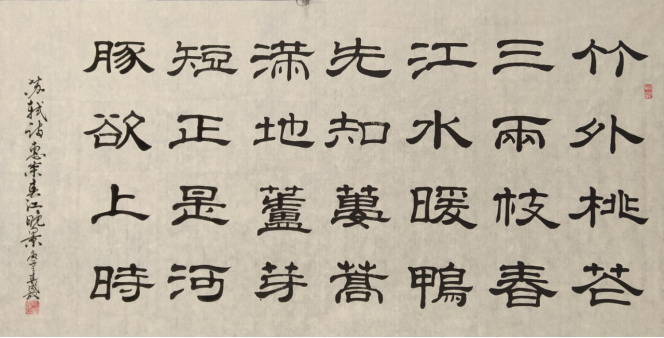 竹外桃花
三兩枝春
江水暖鴨
先知蔞蒿
满地蘆芽
短正是河
豚欲上時
苏轼诗惠崇春江晚景